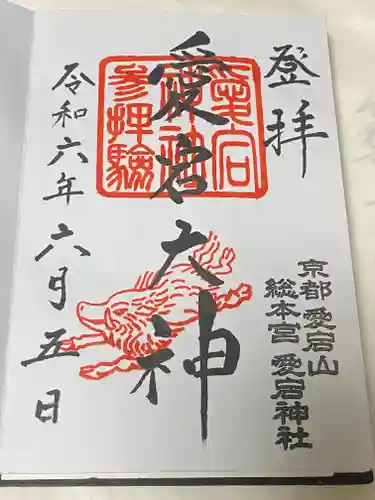 登拝
愛宕大神
令和六年六月五日
京都愛宕山
総本宮 愛宕神社
愛宕
神神
参拝験